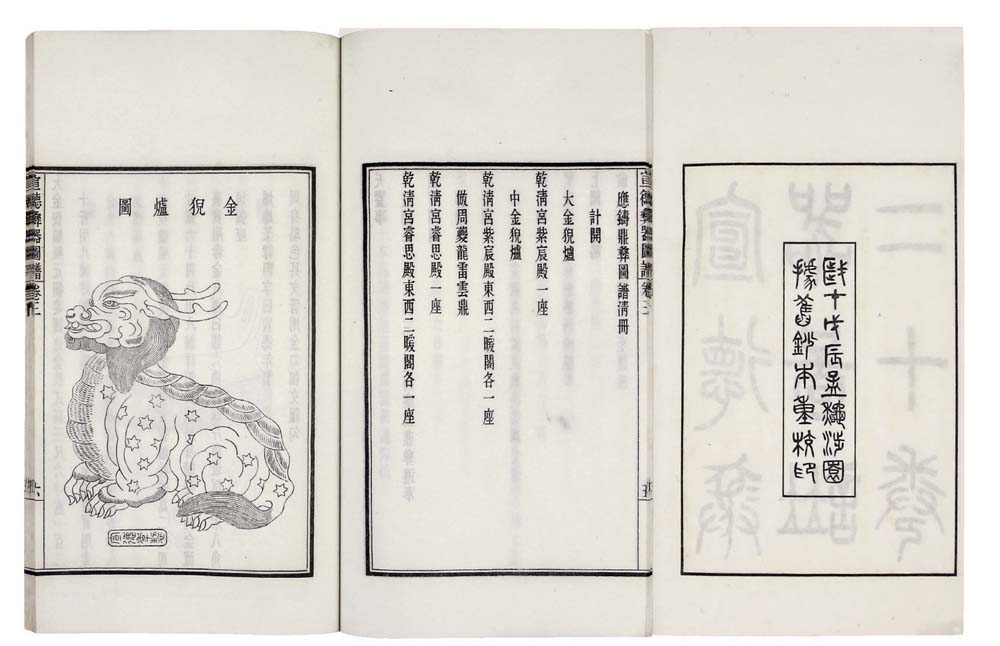 歲在戊辰孟秋涉園
據舊鈔本重校印
宣德彝器圖譜卷
應鑄鼎彝圖譜清冊
計開
大金猊爐
乾清宮紫宸殿一座
中金猊爐
乾清宮紫宸殿東西二暖閣各一座
倣周夔龍雷雲鼎
乾清宮睿思殿一座
乾清宮睿思殿東西二暖閣各一座
金猊爐圖
宣德彝器圖譜卷
六